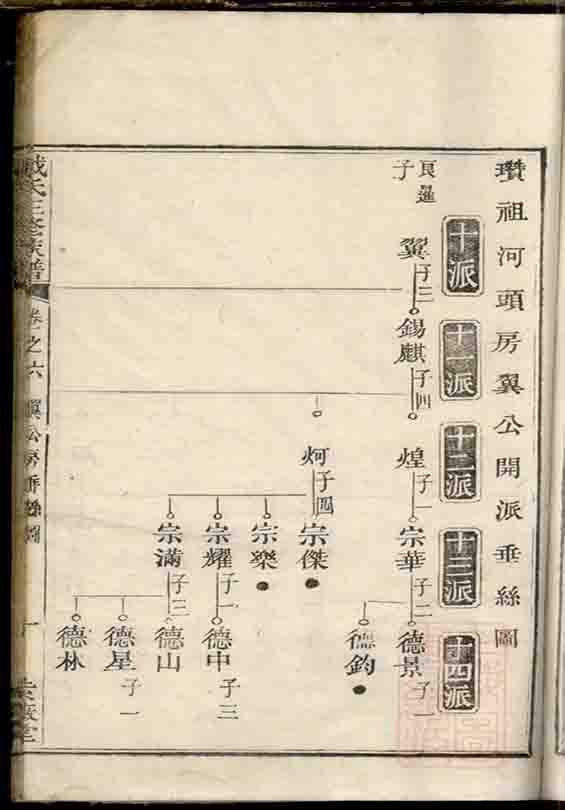 瓚祖河頭房翼公開派垂絲圖
十派
十一派
十二派
十三派
十四派
良暹子
翼
子三
錫麒
子四
煌
子一
宗華
子二
德景
子一
德鈞
炣
子四
宗傑
宗樂
宗耀
子一
德中
子三
宗滿
子三
德山
德星
子一
德林
氏三修族譜
卷之六
翼公房垂絲圖